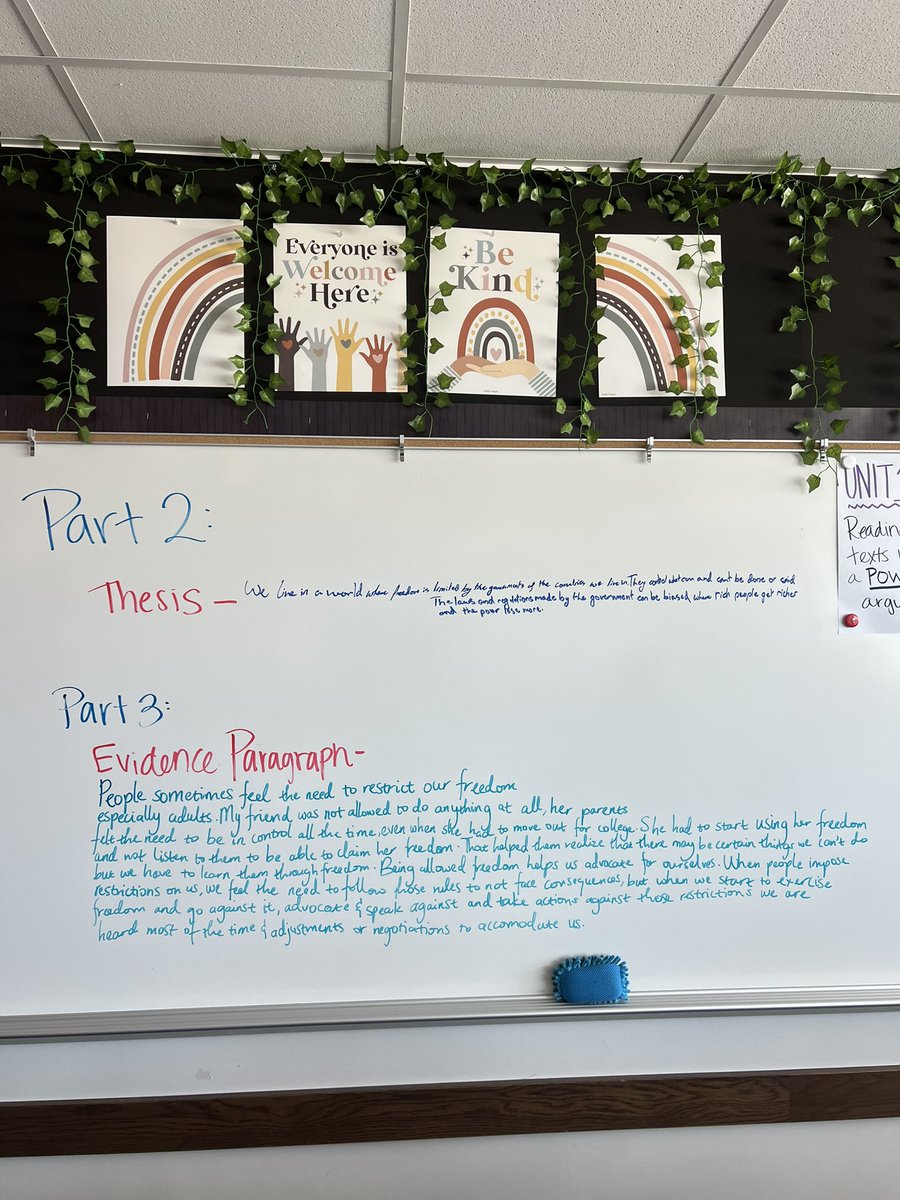 Everyone is
Welcome
Here
Be
Kind
Part 2:
Thesis - We live in a world where freedom is limited by the governments of the countries we live in. They control what can and cant be done or said
The laws and regulations made by the government can be biased, where rich people get richer
and the poor lose more.
UNIT
Readin
texts
a Pow
argu
Part 3:
Evidence Paragraph-
People sometimes feel the need to restrict our freedom
especially adults. My friend was not allowed to do anything at all, her parents
felt the need to be in control all the time, even when she had to move out for college. She had to start using her freedom
and not listen to them to be able to claim her freedom. That helped them realize that there may be certain things we can't do
but we have to learn them through freedom. Being allowed freedom helps us advocate for ourselves. When people impose
restrictions on us, we feel the need to follow those rules to not face consequences, but when we start to exercise
freedom and go against it, advocate & speak against and take actions against those restrictions we are
heard most of the time & adjustments or negotiations to accomodate us.